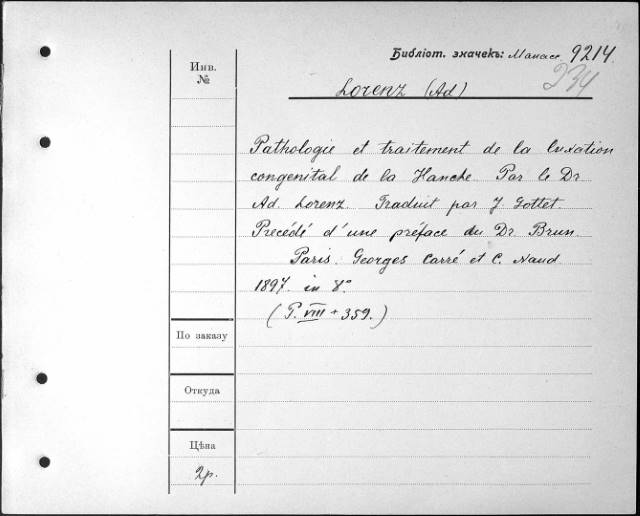 Библіот. значекъ: Манасс. 9214.
D34
Инв.
№
Lorenz (Ad)
Pathologie et traitement de la luxation
congenital de la Hanche. Par le Dr
Ad. Lorenz. Traduit par J. Gottet.
Precédé d'une préface du Dr. Brun.
Paris. Georges Carré et C. Naud
1897. in 8°
(P. VIII + 359.)
По заказу
Откуда
Цѣна
2р.